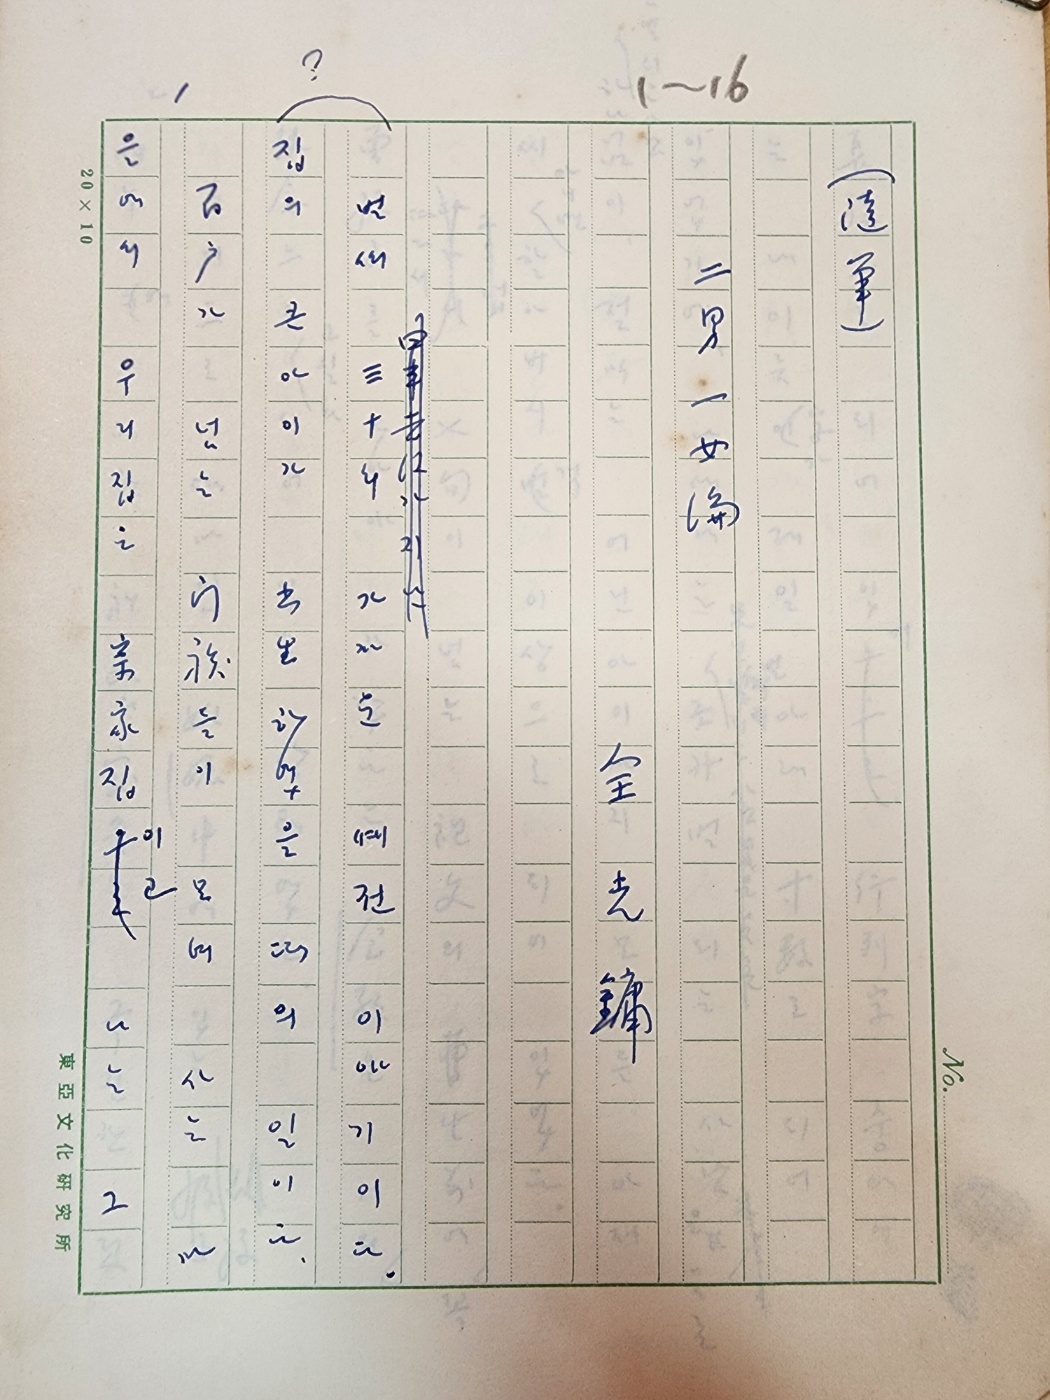 1~16
?
1
(隨筆)
二男一女論
全光鏞
벌써 三十 가까운 해 전 이야기이다.
집의 큰 아이가 出生하였을 때의 일이다.
百戶가 넘는 門族들이 모여 사는 마
을에서 우리집은 宗家집이고 나는 그
No.
20×10
東亞文化研究所